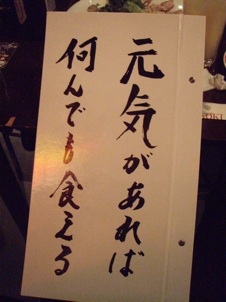 元気があれば
何んでも食える